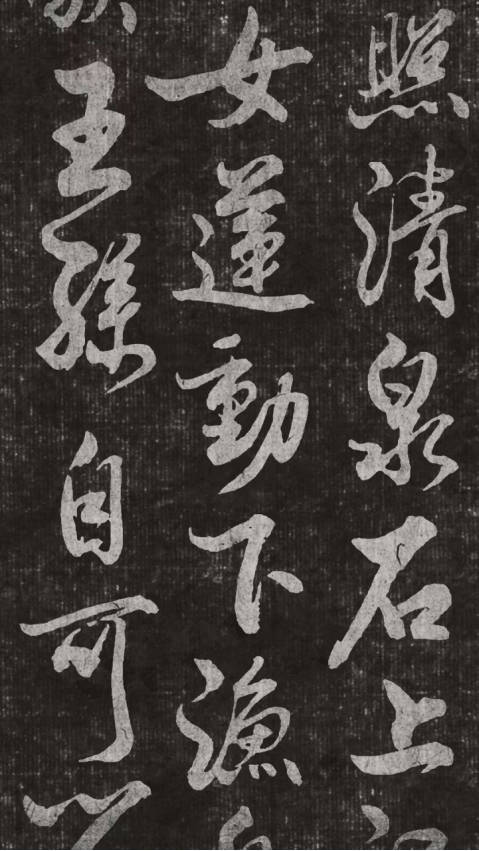 照清泉石上
女蓮動下漁
王孫自可